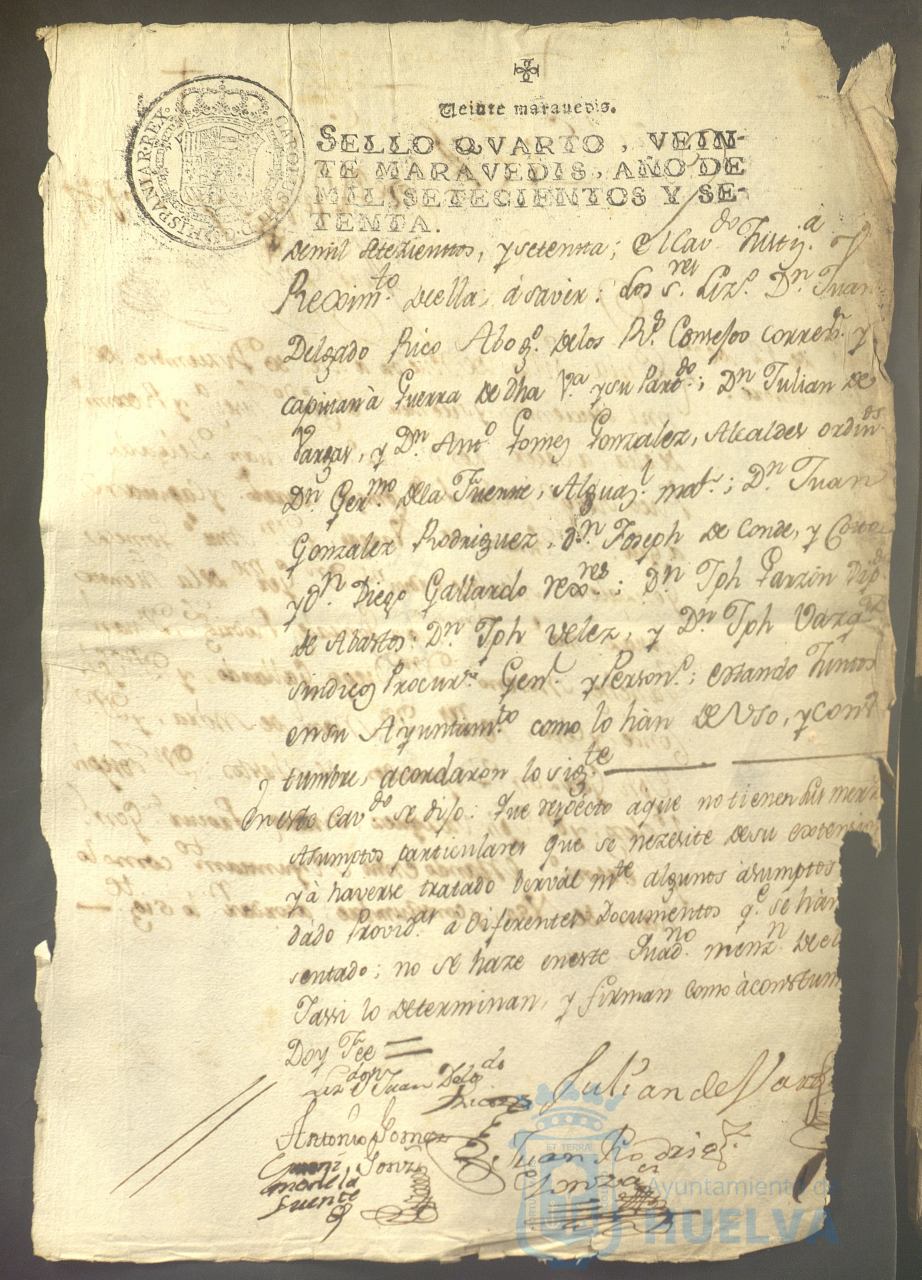 Veinte maravedis.
SELLO QVARTO, VEIN-
TE MARAVEDIS, AÑO DE
MIL SETECIENTOS Y SE-
TENTA.
CAROLUS III D.G. HISPANIAR. REX
demil setezientos, ysetenta; El Cav.do Justiz.a y
Reximto. deella, á saver: los s.res Liz.o Dn. Juan
Delgado Rico Abog.o delos R.s Consejos correxr. y
capitan à Guerra de Dha V.a ysu Part.do; Dn. Julian de
Vargas, y Dn. Ant.o Gomez Gonzalez, Alcaldes ordin.os
Dn. Ger.mo dela Fuente, Alguaz.l mai.r; Dn. Juan
Gonzalez Rodriguez, d.n Joseph de Conde, y
yD.n Diego Gallardo rex.res; Dn. Jph Garzon Dip.do
de Abastos: Dn. Jph Velez, y Dn. Jph Vazq.z
sindicos Procur.r Gen.l y Person.o; estando Juntos
ensu Ayuntam.to como lo hàn de Uso, y cons
tumbre, acordaron lo sig.te
En este Cav.do se dijo: Que respecto aque no tienen
Asumptos particulares que se nezesite desu extensio
yà haverse tratado bervál m.te algunos asumptos
dado Provid.s à Diferentes Documentos q.e se hàn
sentado; no se haze eneste Quad.no menz.n deel
Yassi lo determinan, y firman como àcostum
Doy Fee =
Liz.do Dn Juan Delg.do
Rico
Julian de Varg
Antonio Gomez
Gonz
Juan Rodrig.z
Gonza
Germ
mo de la
fuente
Ayuntamiento de
HUELVA